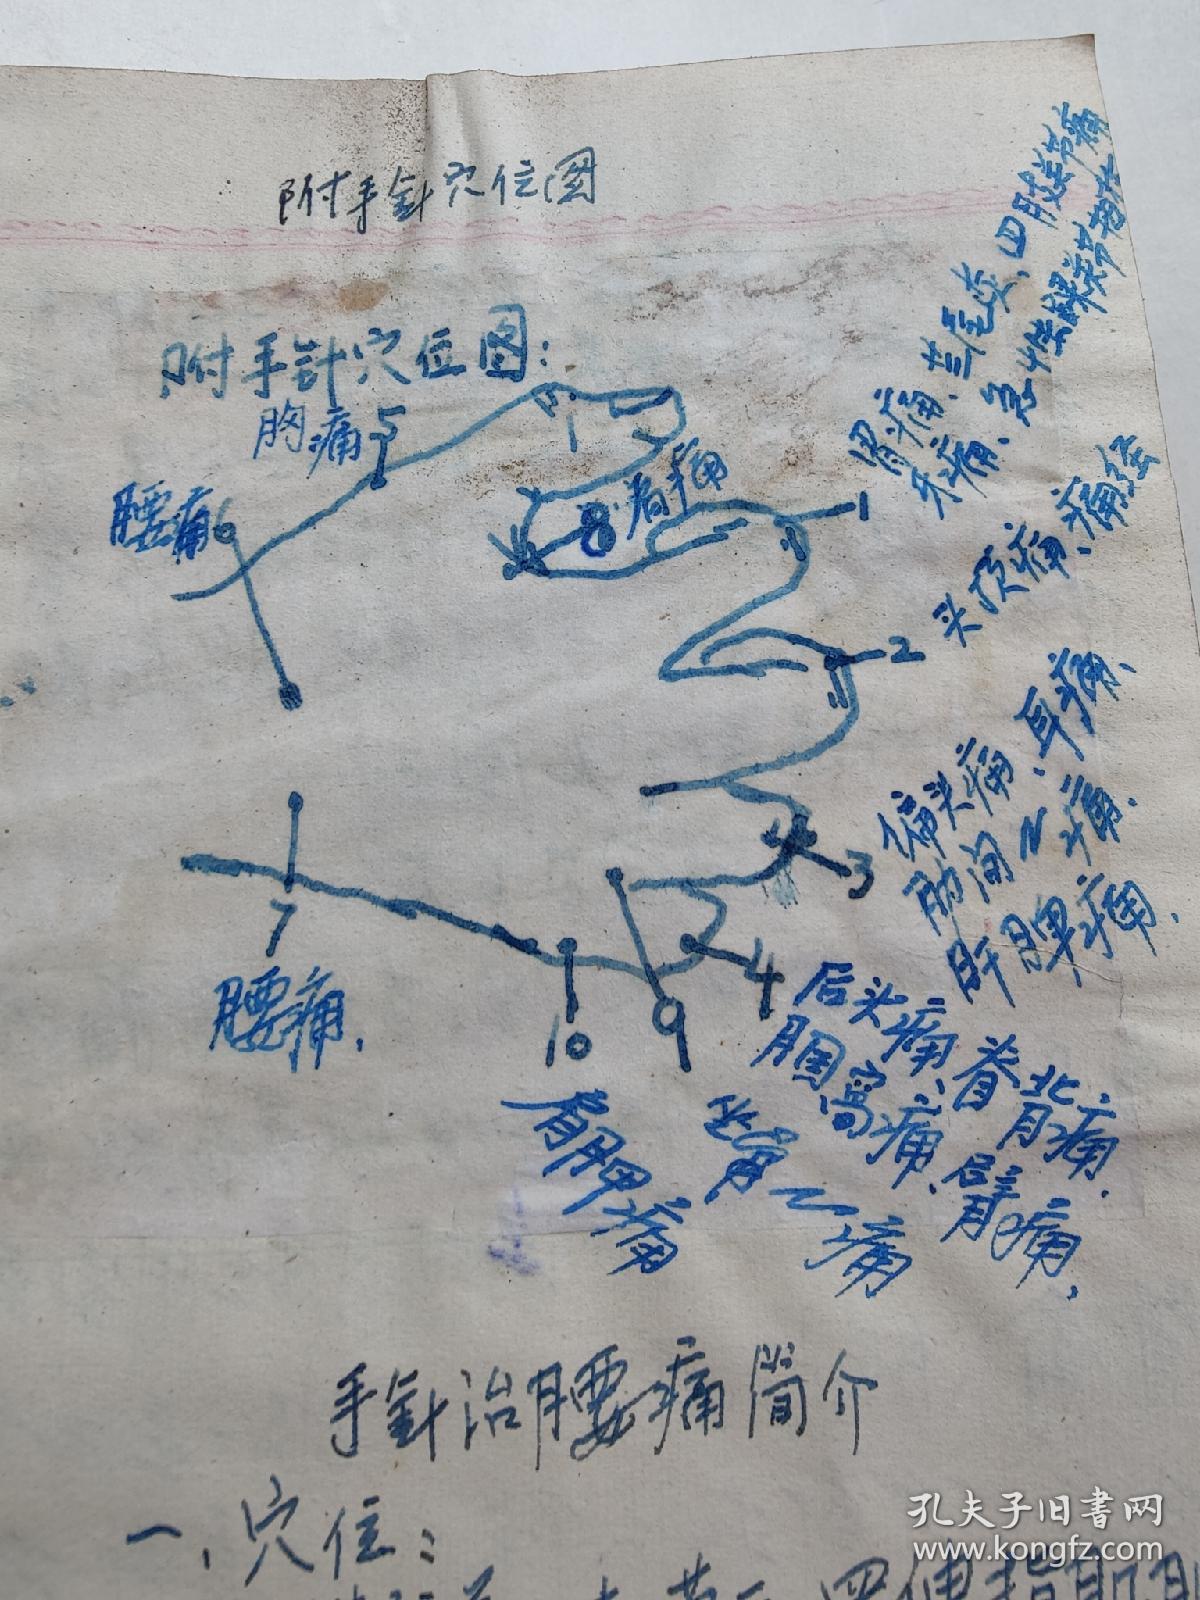 附手針穴位图
附手針穴位图：
胸痛
5
腰痛
6
8
肩痛
1
胃痛、兰尾炎、四肢关节痛
牙痛、急性踝关节扭伤
2
头顶痛、痛经
3
偏头痛、耳痛、
肋间〻痛、
肝脾痛、
4
后头痛、脊背痛、
腘窝痛、臂痛、
9
坐骨〻痛
10
肩胛痛
7
腰痛、
手針治腰痛简介
一、穴位：
孔夫子旧书网
www.kongfz.com